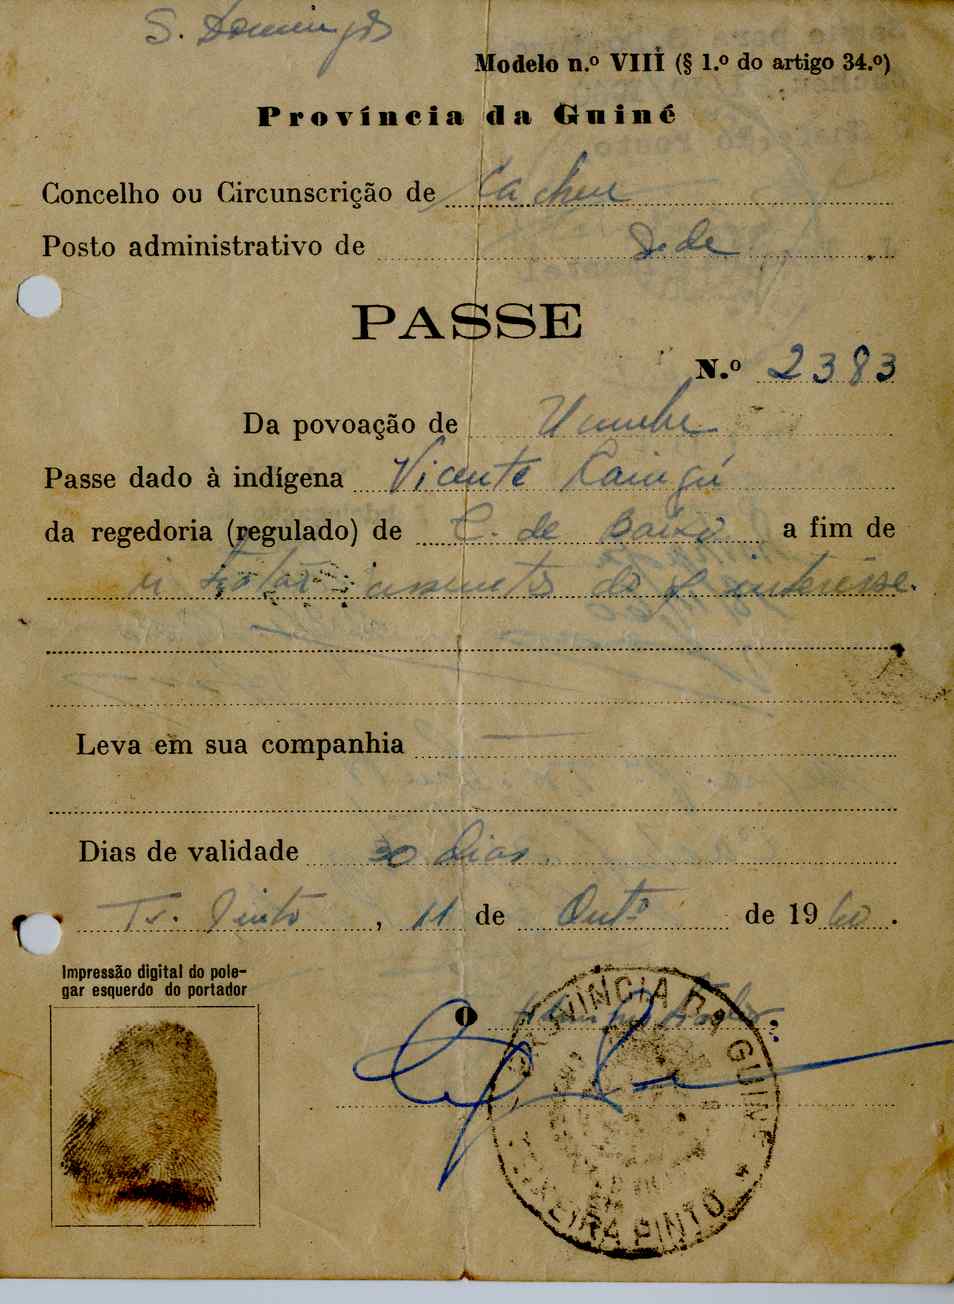 S. Domingos
Modelo n.º VIII (§ 1.º do artigo 34.º)
Província da Guiné
Concelho ou Circunscrição de Cacheu
Posto administrativo de Séde
PASSE
N.º 2383
Da povoação de
Passe dado à indígena Vicente
da regedoria (regulado) de C. de Baixo a fim de
ir tratar assuntos do s/ interêsse.
Leva em sua companhia
Dias de validade 30 dias.
Tx. Pinto, 11 de Outº de 1960.
Impressão digital do pole-
gar esquerdo do portador
O Administrador
PROVINCIA DA GUINÉ
TEIXEIRA PINTO